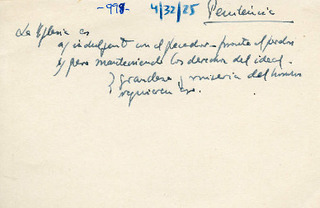 -998- 4/32/25 Penitencia
La Iglesia es
a) indulgente con el pecador - pronta al perdón
b) pero manteniendo los derechos del ideal.
grandeza y miseria del hombre
requieren eso.